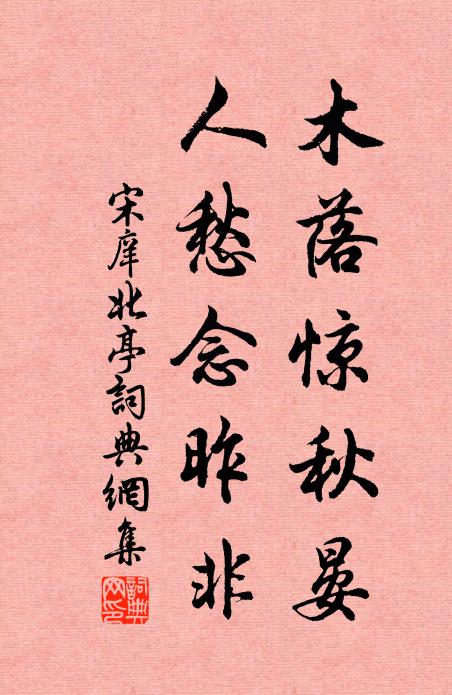 木落惊秋晏
人愁念昨非
宋庠北亭詞典網集
詞典網印